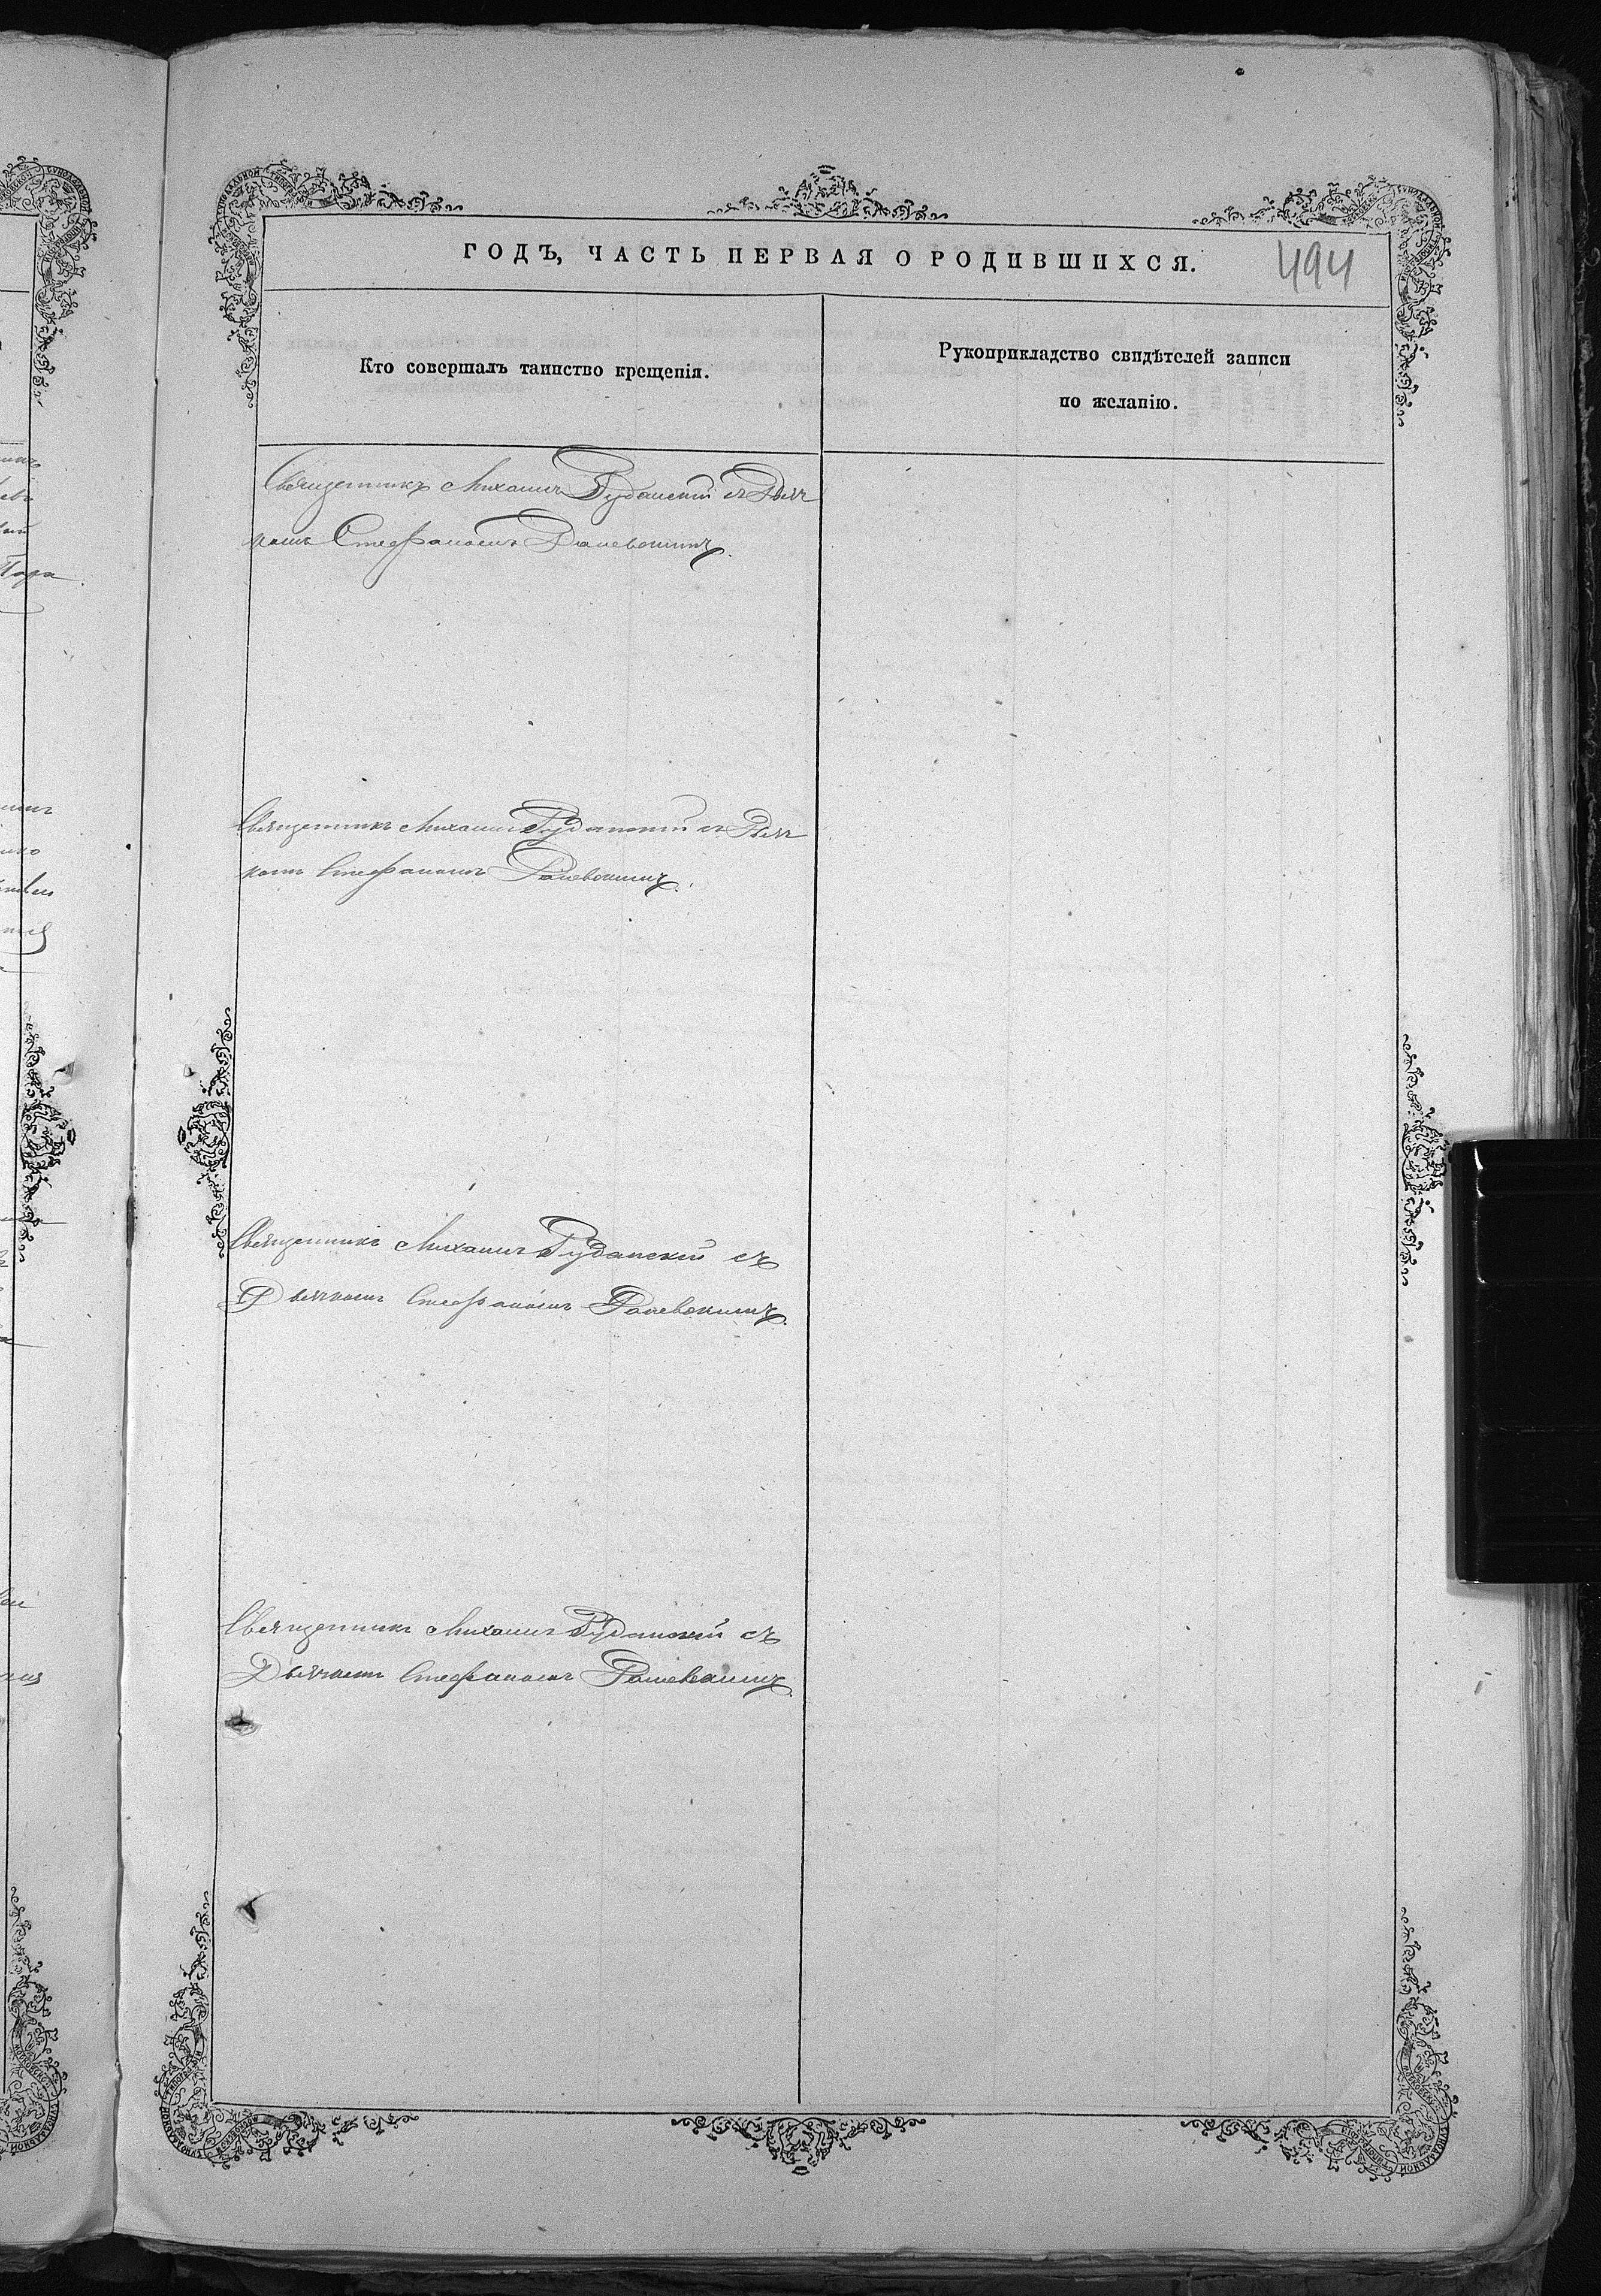 ГОДЪ, ЧАСТЬ ПЕРВАЯ О РОДИВШИХСЯ.
494
Кто совершалъ таинство крещенія.
Рукоприкладство свидѣтелей записи
по желанію.
Священникъ Михаилъ Руданскій съ Дьяч
комъ Стефаномъ
Священникъ Михаилъ Руданскій съ Дьяч
комъ Стефаномъ
Священникъ Михаилъ Руданскій съ
Дьячкомъ Стефаномъ
Священникъ Михаилъ Руданскій съ
Дьячкомъ Стефаномъ